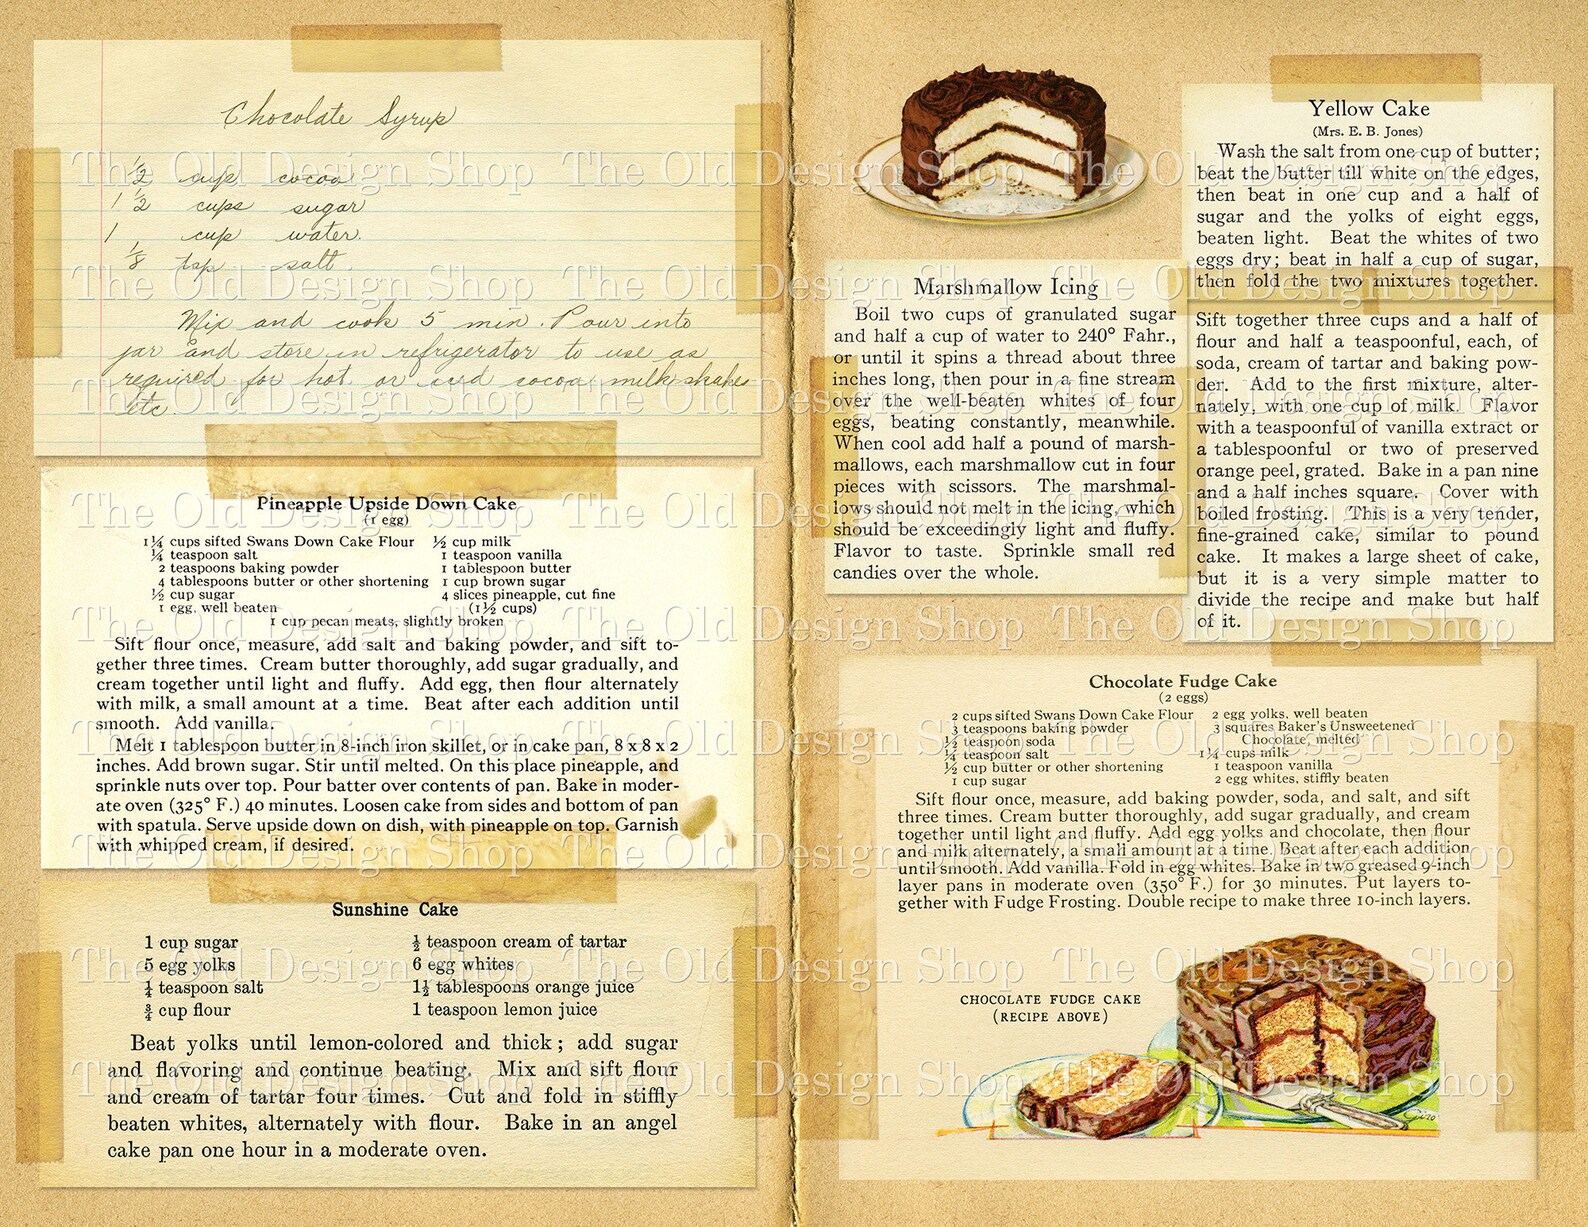 Chocolate Syrup
1/2 cup cocoa
1 1/2 cups sugar
1 cup water
1/8 tsp salt
Mix and cook 5 min. Pour into
jar and store in refrigerator to use as
required for hot or iced cocoa milk shake
etc.
Pineapple Upside Down Cake
(1 egg)
1¼ cups sifted Swans Down Cake Flour
¼ teaspoon salt
2 teaspoons baking powder
4 tablespoons butter or other shortening
½ cup sugar
1 egg, well beaten
½ cup milk
1 teaspoon vanilla
1 tablespoon butter
1 cup brown sugar
4 slices pineapple, cut fine
(1½ cups)
1 cup pecan meats, slightly broken
Sift flour once, measure, add salt and baking powder, and sift to-
gether three times. Cream butter thoroughly, add sugar gradually, and
cream together until light and fluffy. Add egg, then flour alternately
with milk, a small amount at a time. Beat after each addition until
smooth. Add vanilla.
Melt 1 tablespoon butter in 8-inch iron skillet, or in cake pan, 8 x 8 x 2
inches. Add brown sugar. Stir until melted. On this place pineapple, and
sprinkle nuts over top. Pour batter over contents of pan. Bake in moder-
ate oven (325° F.) 40 minutes. Loosen cake from sides and bottom of pan
with spatula. Serve upside down on dish, with pineapple on top. Garnish
with whipped cream, if desired.
Sunshine Cake
1 cup sugar
5 egg yolks
¼ teaspoon salt
¾ cup flour
½ teaspoon cream of tartar
6 egg whites
1½ tablespoons orange juice
1 teaspoon lemon juice
Beat yolks until lemon-colored and thick; add sugar
and flavoring and continue beating. Mix and sift flour
and cream of tartar four times. Cut and fold in stiffly
beaten whites, alternately with flour. Bake in an angel
cake pan one hour in a moderate oven.
Marshmallow Icing
Boil two cups of granulated sugar
and half a cup of water to 240° Fahr.,
or until it spins a thread about three
inches long, then pour in a fine stream
over the well-beaten whites of four
eggs, beating constantly, meanwhile.
When cool add half a pound of marsh-
mallows, each marshmallow cut in four
pieces with scissors. The marshmal-
lows should not melt in the icing, which
should be exceedingly light and fluffy.
Flavor to taste. Sprinkle small red
candies over the whole.
Yellow Cake
(Mrs. E. B. Jones)
Wash the salt from one cup of butter;
beat the butter till white on the edges,
then beat in one cup and a half of
sugar and the yolks of eight eggs,
beaten light. Beat the whites of two
eggs dry; beat in half a cup of sugar,
then fold the two mixtures together.
Sift together three cups and a half of
flour and half a teaspoonful, each, of
soda, cream of tartar and baking pow-
der. Add to the first mixture, alter-
nately, with one cup of milk. Flavor
with a teaspoonful of vanilla extract or
a tablespoonful or two of preserved
orange peel, grated. Bake in a pan nine
and a half inches square. Cover with
boiled frosting. This is a very tender,
fine-grained cake, similar to pound
cake. It makes a large sheet of cake,
but it is a very simple matter to
divide the recipe and make but half
of it.
Chocolate Fudge Cake
(2 eggs)
2 cups sifted Swans Down Cake Flour
3 teaspoons baking powder
½ teaspoon soda
¼ teaspoon salt
½ cup butter or other shortening
1 cup sugar
2 egg yolks, well beaten
3 squares Baker's Unsweetened
Chocolate, melted
1¼ cups milk
1 teaspoon vanilla
2 egg whites, stiffly beaten
Sift flour once, measure, add baking powder, soda, and salt, and sift
three times. Cream butter thoroughly, add sugar gradually, and cream
together until light and fluffy. Add egg yolks and chocolate, then flour
and milk alternately, a small amount at a time. Beat after each addition
until smooth. Add vanilla. Fold in egg whites. Bake in two greased 9-inch
layer pans in moderate oven (350° F.) for 30 minutes. Put layers to-
gether with Fudge Frosting. Double recipe to make three 10-inch layers.
CHOCOLATE FUDGE CAKE
(RECIPE ABOVE)
The Old Design Shop The Old Design Shop The Old Design Shop
The Old Design Shop The Old Design Shop The Old Design Shop
The Old Design Shop The Old Design Shop The Old Design Shop
The Old Design Shop The Old Design Shop The Old Design Shop
The Old Design Shop The Old Design Shop The Old Design Shop
The Old Design Shop The Old Design Shop The Old Design Shop
The Old Design Shop The Old Design Shop The Old Design Shop
The Old Design Shop The Old Design Shop The Old Design Shop
The Old Design Shop The Old Design Shop The Old Design Shop